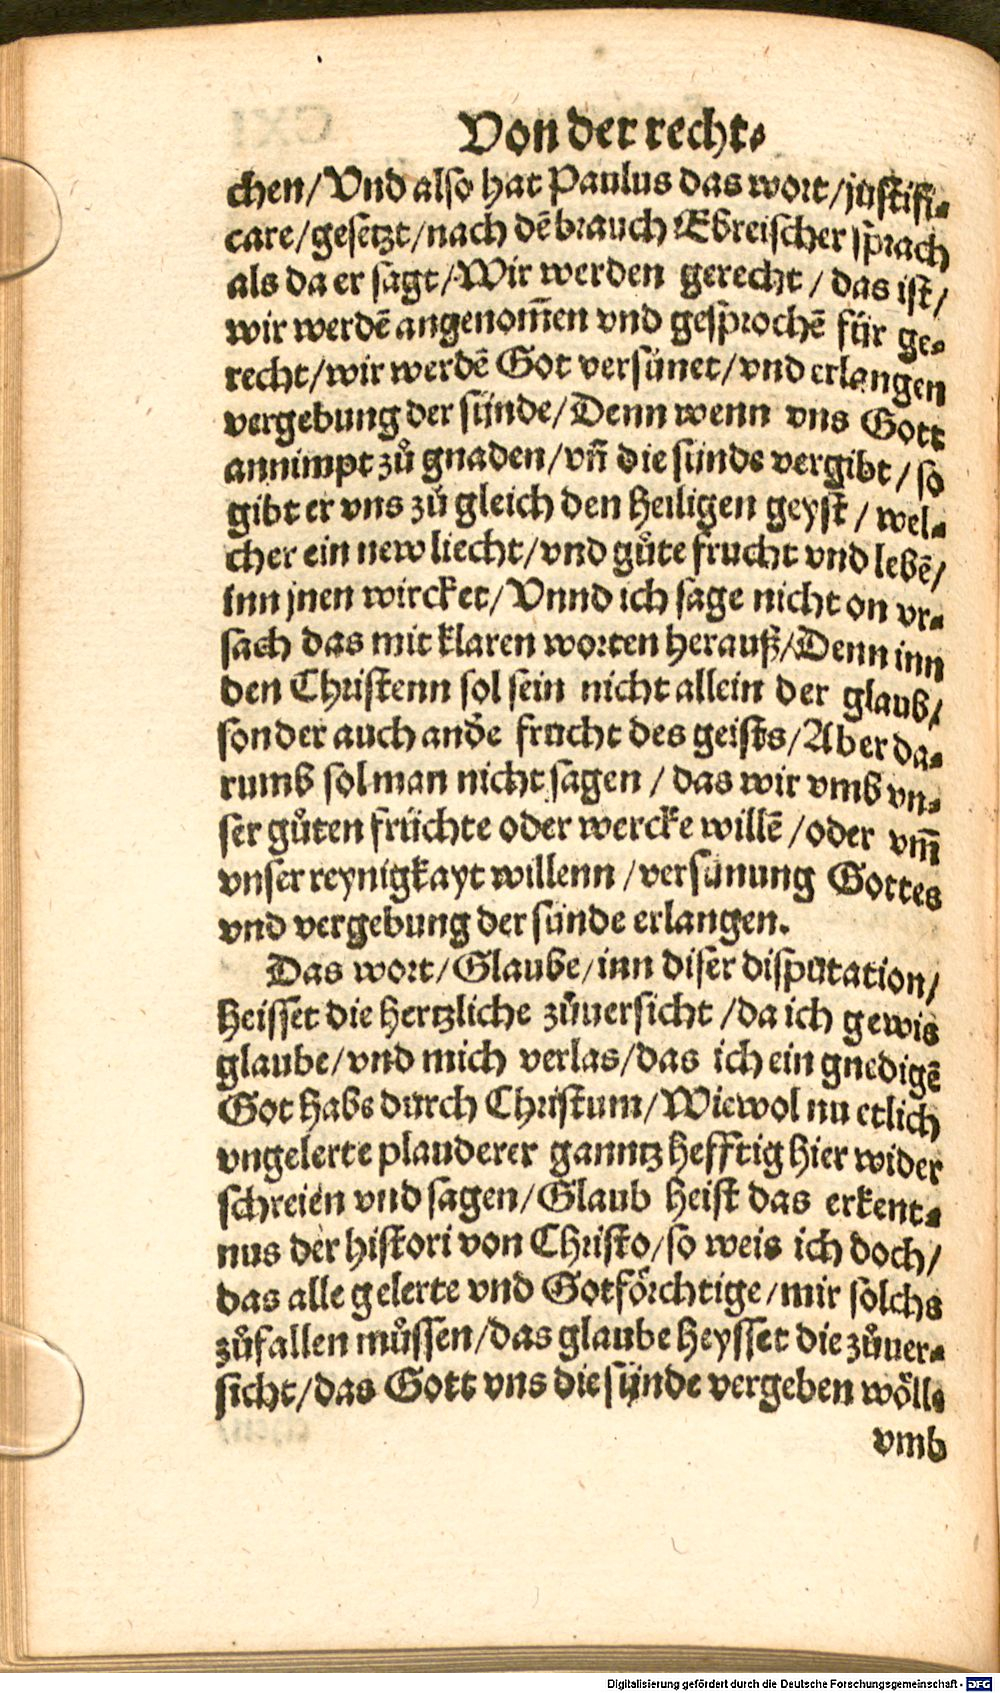 Von der recht⸗
chen/Vnd also hat Paulus das wort/justifi⸗
care/gesetzt/nach dẽ brauch Ebreischer sprach
als da er sagt/Wir werden gerecht/ das ist/
wir werdẽ angenom̃en vnd gesprochẽ für ge⸗
recht/wir werdẽ Got versünet/vnd erlangen
vergebung der sünde/Denn wenn vns Gott
annimpt zů gnaden/vñ die sünde vergibt/so
gibt er vns zů gleich den heiligen geyst/wel⸗
cher ein new liecht/vnd gůte frucht vnd lebẽ/
inn jnen wircket/Vnnd ich sage nicht on vr⸗
sach das mit klaren worten herauß/Denn inn
den Christenn sol sein nicht allein der glaub/
sonder auch andẽ frucht des geists/Aber da⸗
rumb sol man nicht sagen/das wir vmb vn⸗
ser gůten früchte oder wercke willẽ/oder vm̃
vnser reynigkayt willenn/versünung Gottes
vnd vergebung der sünde erlangen.
Das wort/Glaube/inn diser disputation/
heisset die hertzliche zůuersicht/da ich gewis
glaube/vnd mich verlas/das ich ein gnedigẽ
Got habe durch Christum/Wiewol nu etlich
vngelerte plauderer ganntz hefftig hier wider
schreien vnd sagen/Glaub heist das erkent⸗
nus der histori von Christo/so weis ich doch/
das alle gelerte vnd Gotförchtige/mir solchs
zůfallen můssen/das glaube heysset die zůuer⸗
sicht/das Gott vns die sünde vergeben wöll⸗
vmb
Digitalisierung gefördert durch die Deutsche Forschungsgemeinschaft - DFG